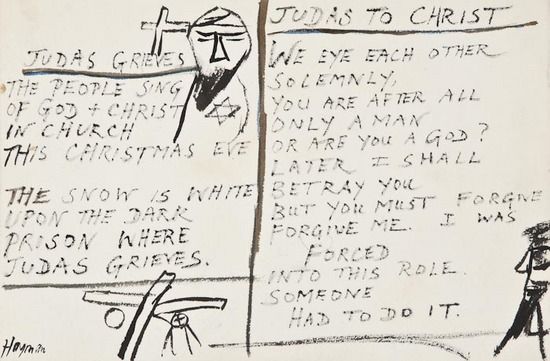 JUDAS GRIEVES
THE PEOPLE SING
OF GOD + CHRIST
IN CHURCH
THIS CHRISTMAS EVE
THE SNOW IS WHITE
UPON THE DARK
PRISON WHERE
JUDAS GRIEVES.
JUDAS TO CHRIST
WE EYE EACH OTHER
SOLEMNLY,
YOU ARE AFTER ALL
ONLY A MAN
OR ARE YOU A GOD?
LATER I SHALL
BETRAY YOU
BUT YOU MUST FORGIVE
FORGIVE ME. I WAS
FORCED
INTO THIS ROLE.
SOMEONE
HAD TO DO IT.